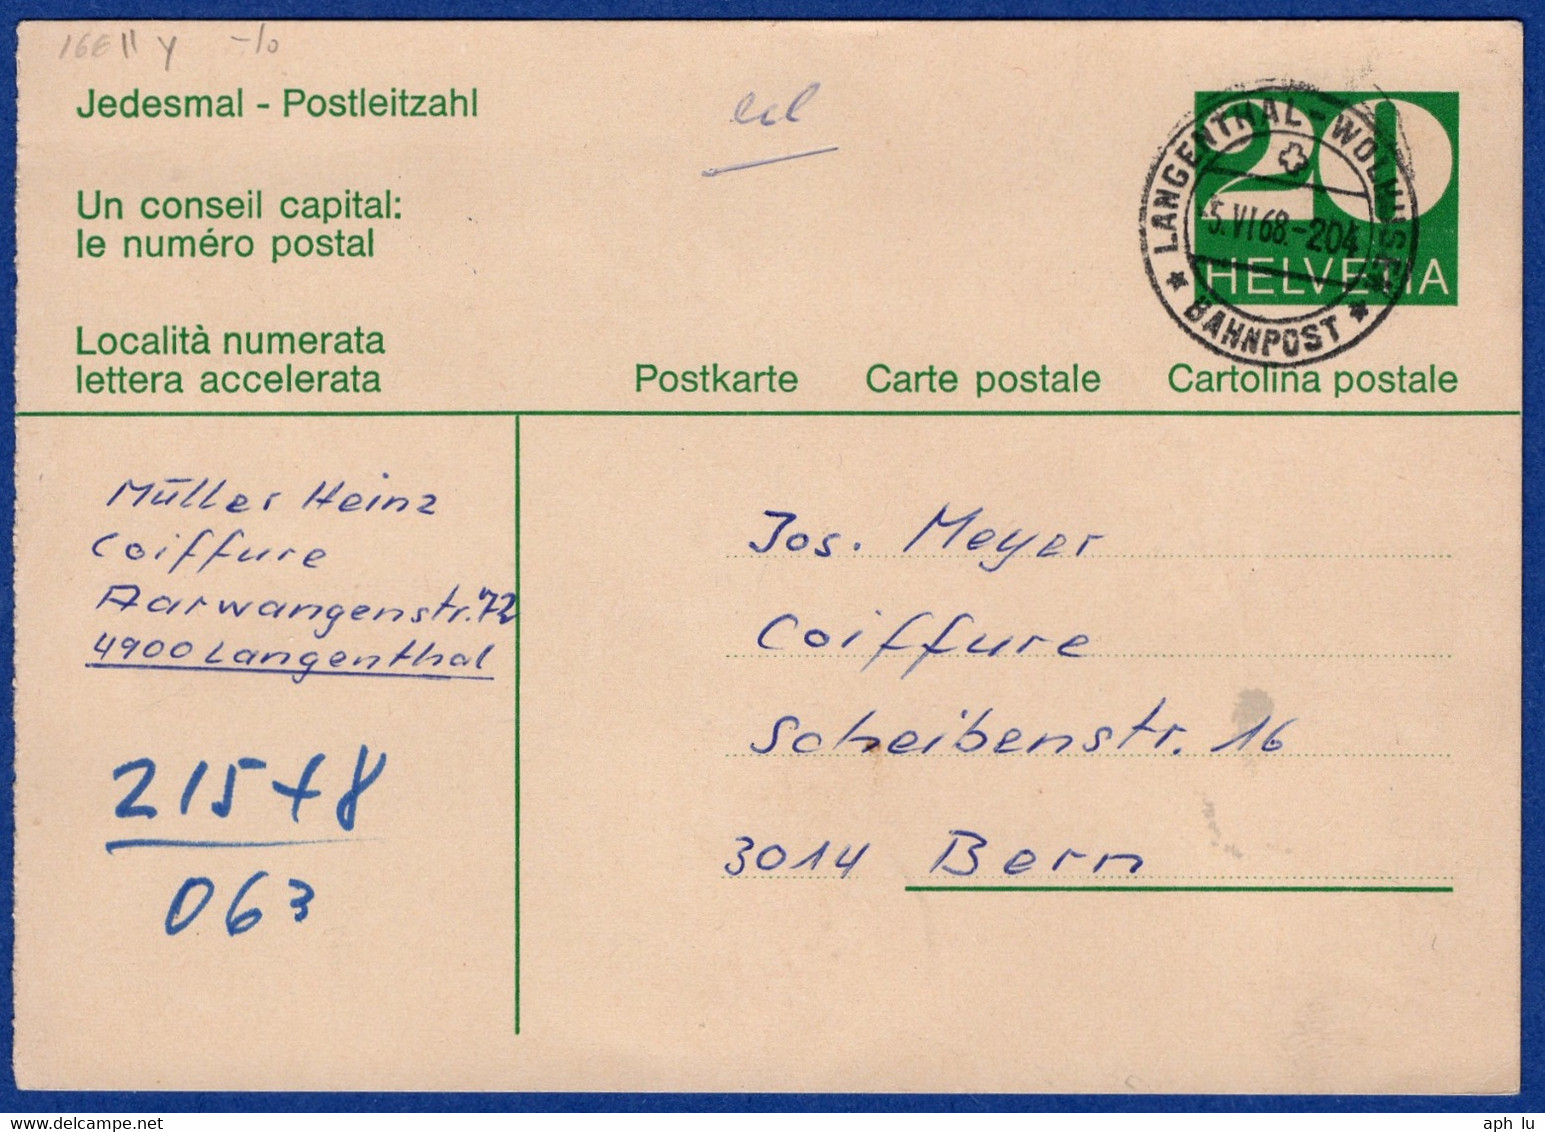 Jedesmal - Postleitzahl
Un conseil capital:
le numéro postal
Località numerata
lettera accelerata
20
HELVETIA
LANGENTHAL-WOLHUSEN
-5.VI 68.-204
★ BAHNPOST ★
Postkarte Carte postale Cartolina postale
Müller Heinz
Coiffure
Aarwangenstr. 72
4900 Langenthal
215 +8
063
Jos. Meyer
Coiffure
Scheibenstr. 16
3014 Bern
aph lu